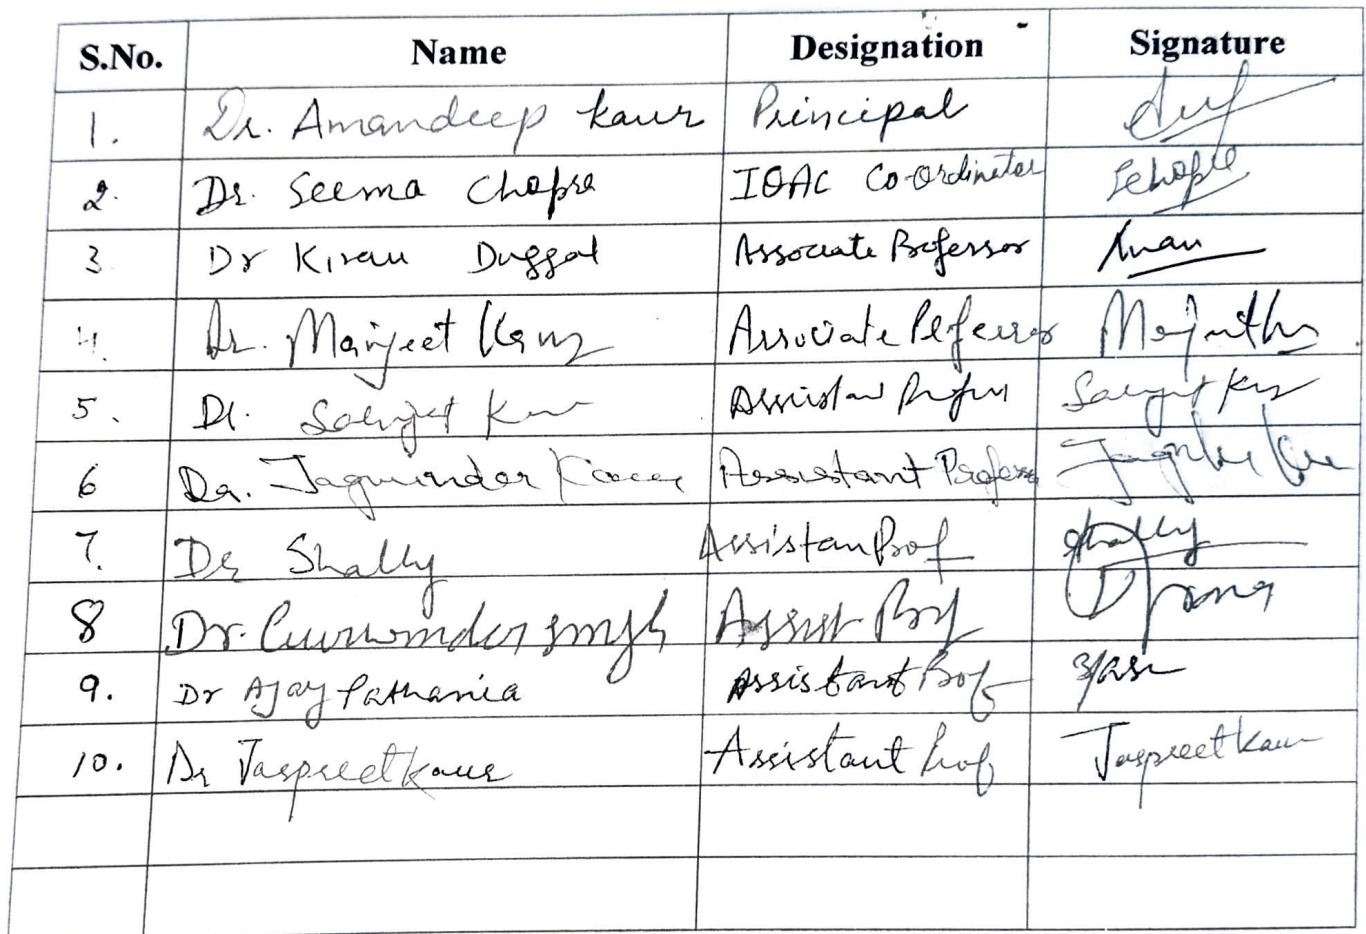 S.No. Name Designation Signature
1. Dr. Amandeep kaur Principal
2. Dr. Seema Chopra IQAC Co-Ordinator SChopra
3. Dr Kiran Duggal Associate Professor Kiran
4. Dr. Manjeet Kaur Associate Professor
5. Dr. Kaur Assistant Profess
6 Dr. Jagwinder Kaur Assistant Professor
7. Dr Shally Assistan Prof Shally
8 Dr. Gurwinder singh Assist Prof
9. Dr Ajay Pathania Assistant Prof
10. Dr Jaspreet kaur Assistant Prof Jaspreet kaur